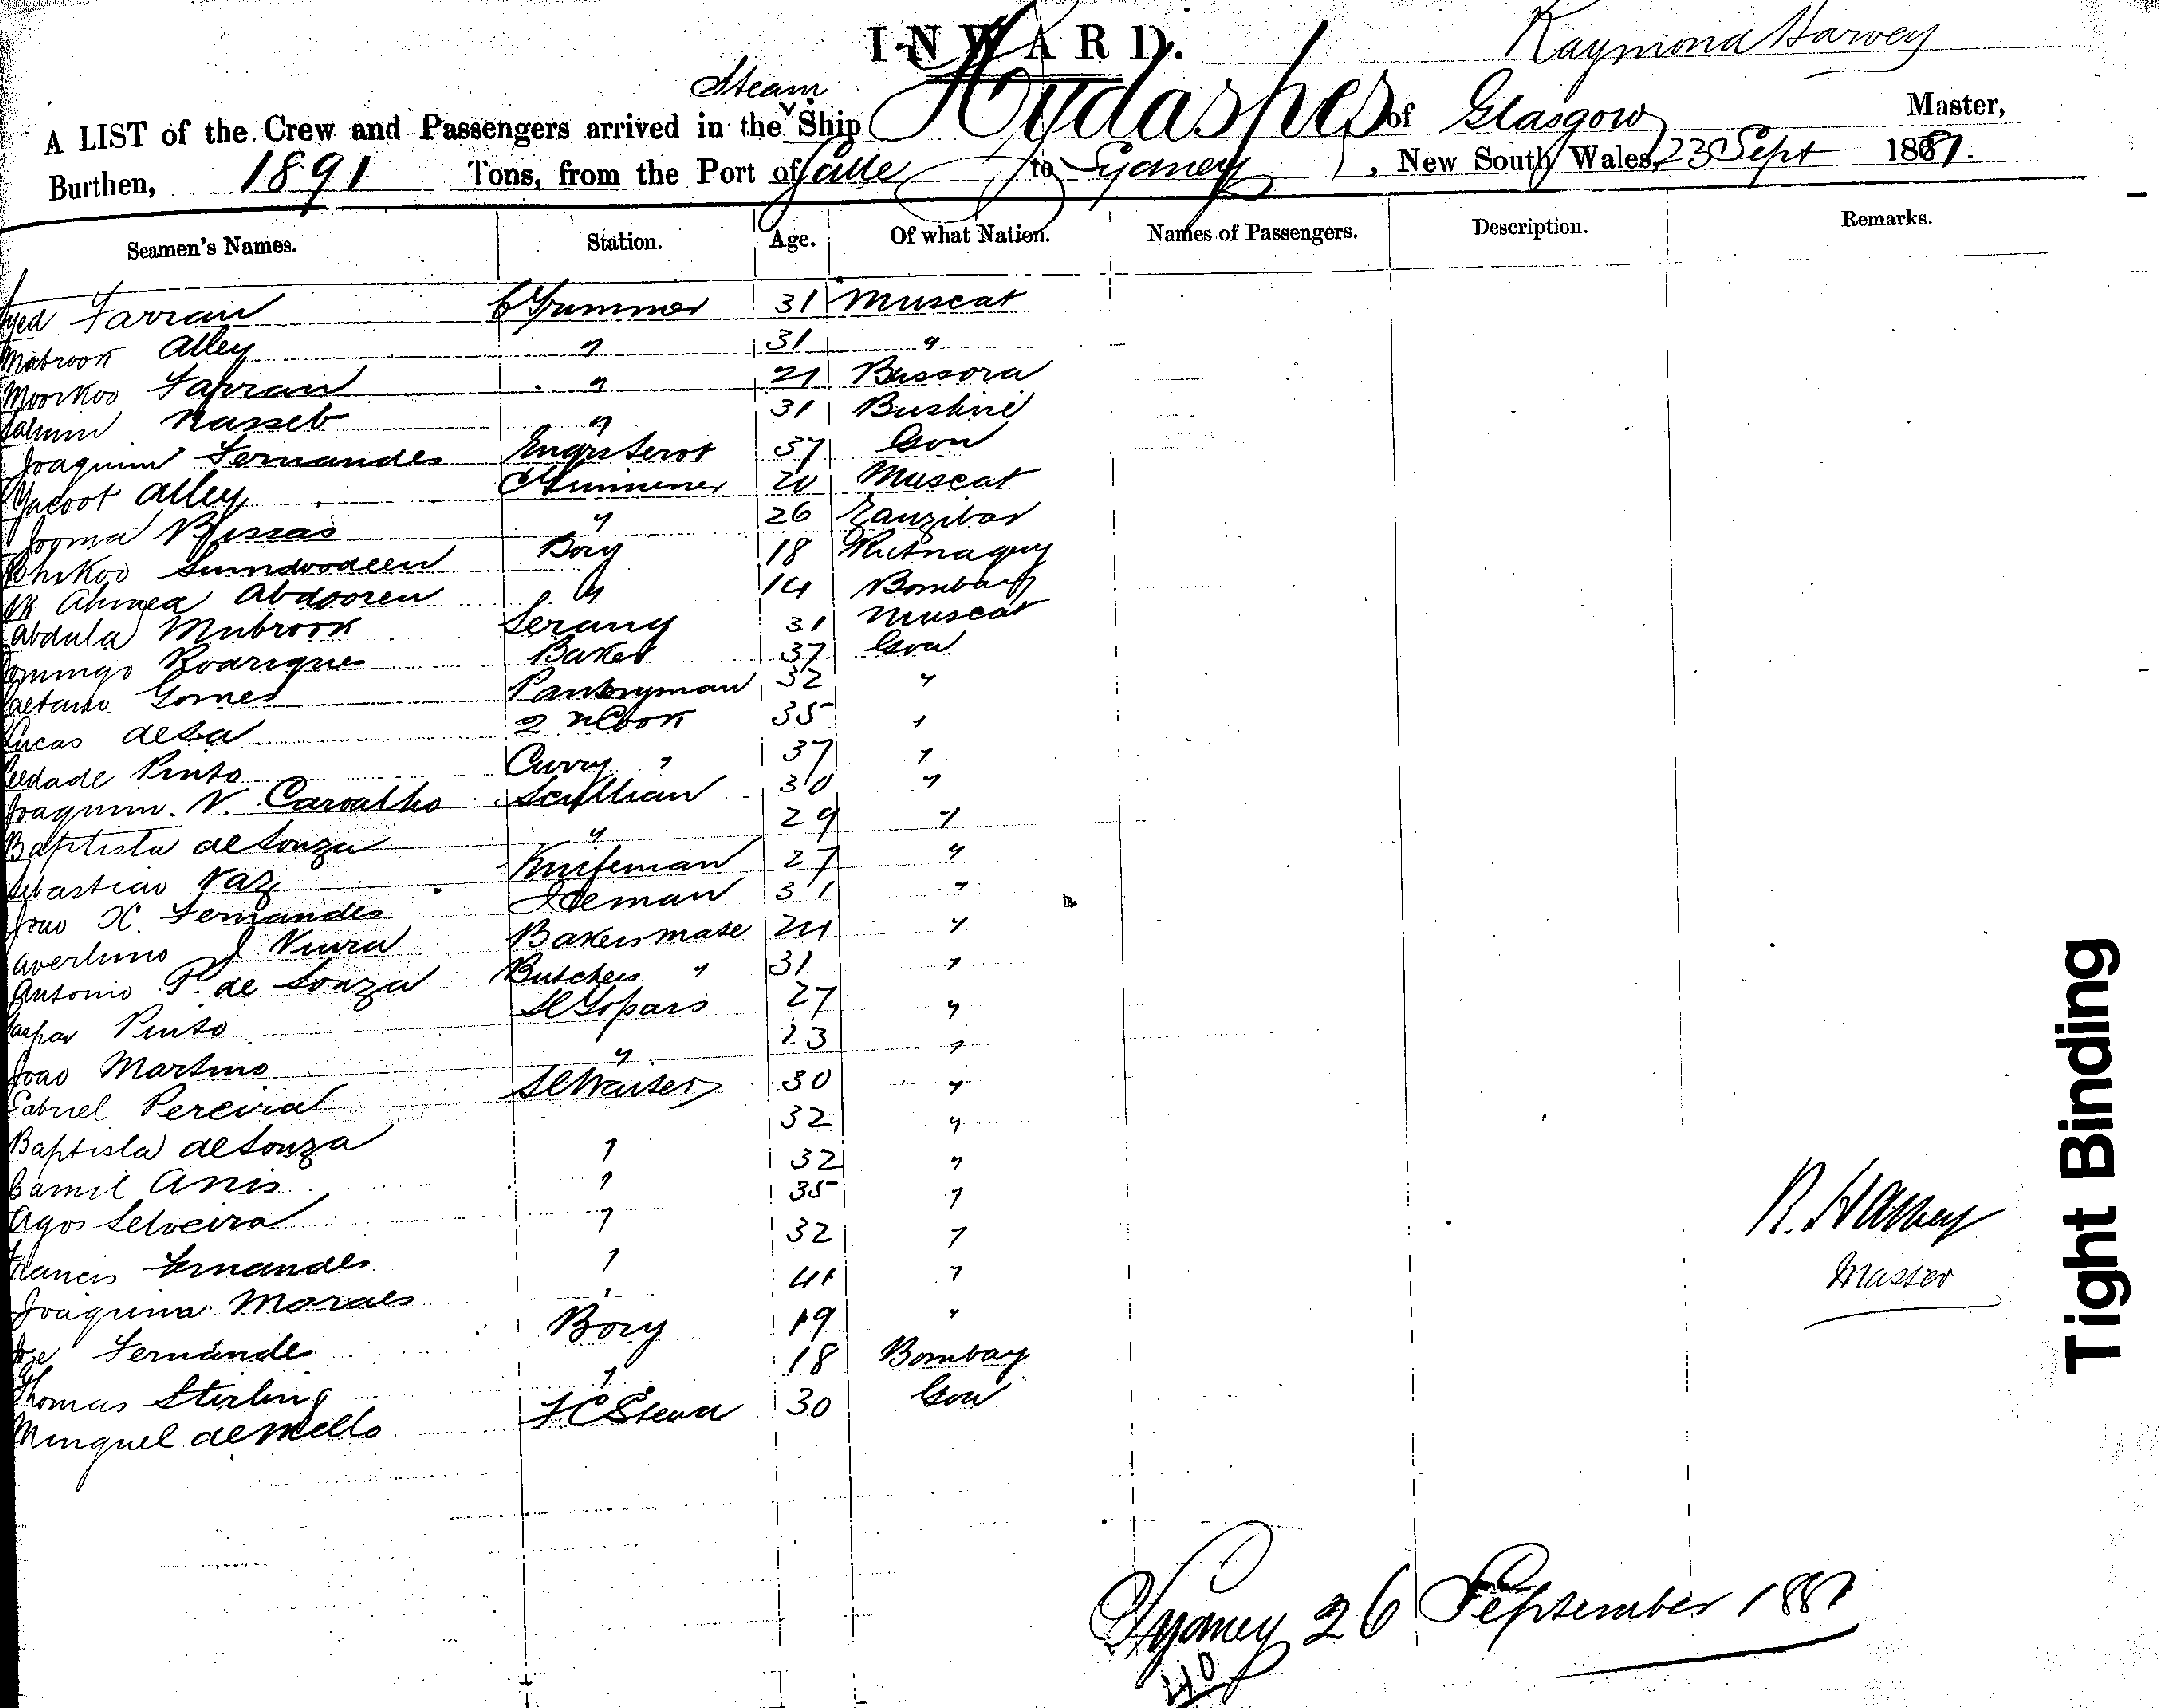 INWARD.
Raymond Harvey
Steam
A LIST of the Crew and Passengers arrived in the Ship Hydaspes of Glasgow Master,
Burthen, 1891 Tons, from the Port of Galle to Sydney, New South Wales, 23 Sept 1881.
Seamen's Names. Station. Age. Of what Nation. Names of Passengers. Description. Remarks.
Farran C Trimmer 31 Muscat
Mabrook Alley " 31 "
Moorkoo Farran " 21 Bussora
Nasseb " 31 Bushire
Joaquim Fernandes Engrs Servt 37 Goa
Yacoot Alley C Trimmer 20 Muscat
Jooma " 26 Zanzibar
Boy 18 Rutnagery
Ahmed " 14 Bombay
Abdula Mubrook Serang 31 Muscat
Rodrigues Baker 37 Goa
Caetano Gomes Pantryman 32 "
Lucas deSa 2 nCook 35 "
Piedade Pinto Curry " 37 "
Joaquim. N. Carvalho Scullian 30 "
Baptista de Souza " 29 "
Sebastiao Vaz Knifeman 27 "
Joao X. Fernandes 31 "
J Viura Bakers mate 24 "
Antonio P. de Souza Butchers " 31 "
Caspar Pinto Topass 27 "
Joao Martins " 23 "
Gabriel Pereira Waiter 30 "
Baptista deSouza 32 "
Camil Anis " 32 "
Agos Selveira " 35 "
Francis Fernandes " 32 "
Joaquim Moraes " 41 "
Joze Fernande Boy 19 "
Thomas Stirling " 18 Bombay
Minguel de Mello 30 Goa
R. Harvey
Master
Tight Binding
Sydney 26 September 1881
40